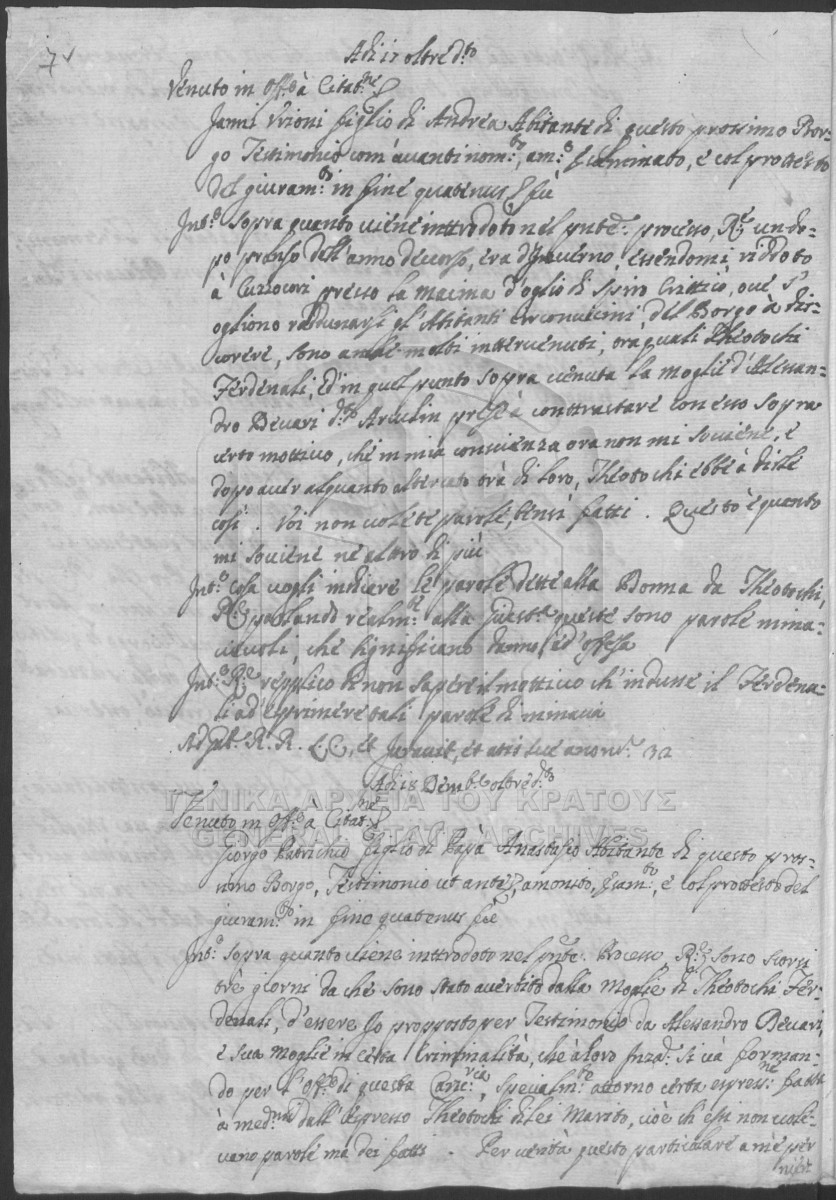 7
Adi 17 oltred.to
Venuto in Off.o à Citat.ne
Janni Vrioni figlio di Andrea Abitante di questo prossimo Bor-
go Testimonio com'avanti nom.to, am.o, e col protesto
del giuram.to in fine quatenus
Int.o sopra quanto viene introdoto nel pnte processo, R.e un do-
po pranso dell'anno decorso, era d'Inverno, essendomi ridoto
à presso la macina d'oglio di Spiro Crittico, ove s'
ogliono radunarsi gl'Abitanti circonvicini del Borgo à dis-
corere, sono anche molti intervenuti, trà quali Theotochi
Ferdenali, ed in quel punto sopra venuta la moglie d'Alessan-
dro Devari d.to prese à conttractare con esso sopra
certo mottivo, che in mia conscienza ora non mi soviene, e
dopo aver alquanto altercato trà di loro, Theotochi ebbe à dirle
cosi. Voi non volete parole, bensi fatti. Questo è quanto
mi soviene ne altro di più
Int.o cosa vogli indicare le parole dette alla Donna da Theotochi,
R.e parlando realm.te alla queste sono parole mina-
cievoli, che significano danno, ed'offesa
Int.o R.e replico di non sapere il mottivo ch'indusse il Ferdena-
li ad'esprimere tali parole di minacia
Ad R. R. L. C., et Juravit, et annor. 32
Adi 18 Decemb.e oltred.to
ΓΕΝΙΚΑ ΑΡΧΕΙΑ ΤΟΥ ΚΡΑΤΟΥΣ
Venuto in Off.o à Citat.ne
GENERAL STATE ARCHIVES
Giorgo figlio di Papà Anastasio Abitante di questo pros-
simo Borgo, Testimonio ut ante, amonito, Esam.to, e col protesto del
giuram.to in fine quatenus
Int.o sopra quanto viene introdoto nel pnte Processo, R.e sono scorsi
trè giorni da che sono stato avertito dalla Moglie di Theotochi Fer-
denali, d'essere Io propposto per Testimonio da Alessandro Devari,
e sua moglie in certa Criminalità, che à loro si và forman-
do per l'Off.o di questa Canc.ria, specialm.te attorno certa espress.ne fatta
à med.ma dall'espresso Theotochi di lei Marito, cioè ch'essi non vole-
vano parole mà dei fatti. Per verità questo particolare a mè per